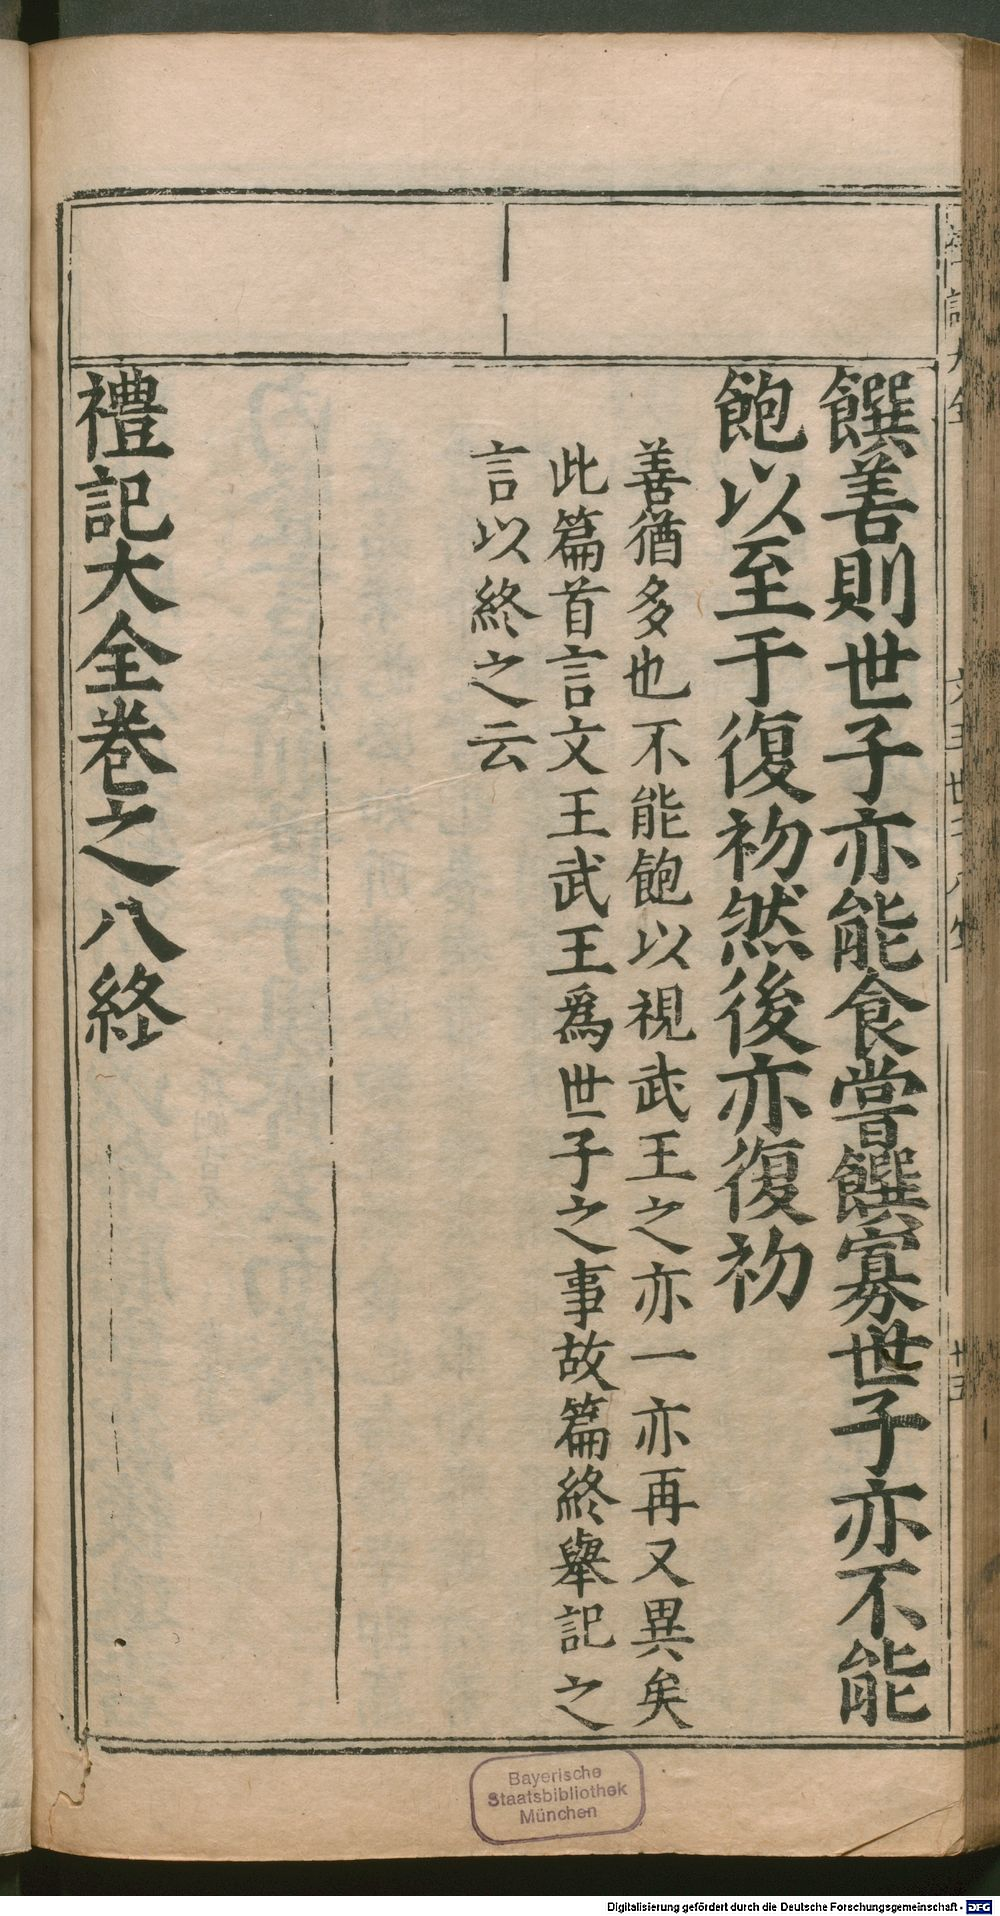 饌善則世子亦能食嘗饌寡世子亦不能
飽以至于復初然後亦復初
善猶多也不能飽以視武王之亦一亦再又異矣
此篇首言文王武王爲世子之事故篇終舉記之
言以終之云
禮記大全卷之八終
Bayerische
Staatsbibliothek
München
Digitalisierung gefördert durch die Deutsche Forschungsgemeinschaft - DFG